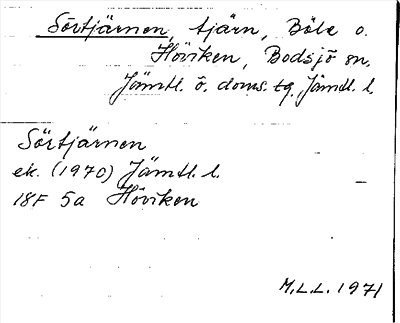 Sörtjärnen, tjärn, Böle o.
Höviken, Bodsjö sn.
Jämtl. ö. doms. tg. Jämtl. l.
Sörtjärnen
ek. (1970) Jämtl. l.
18F 5a Höviken
M.L.L. 1971